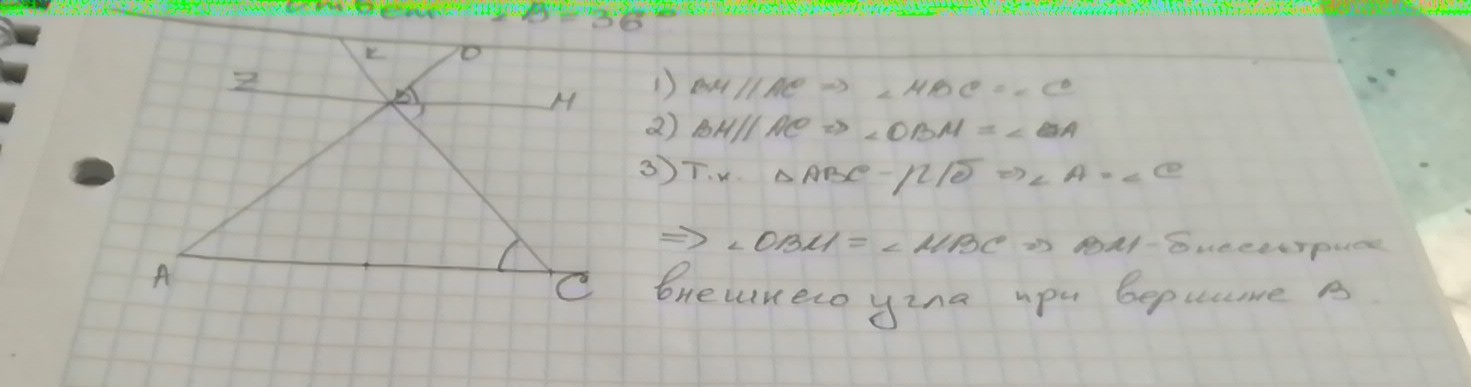 ∠B = 36°
K O
Z M
B
1) BM || AC ⇒ ∠MBC = ∠C
2) BM || AC ⇒ ∠OBM = ∠A
3) Т.к. △ABC - р/б ⇒ ∠A = ∠C
⇒ ∠OBM = ∠MBC ⇒ BM - биссектриса
внешнего угла при вершине B.
A C